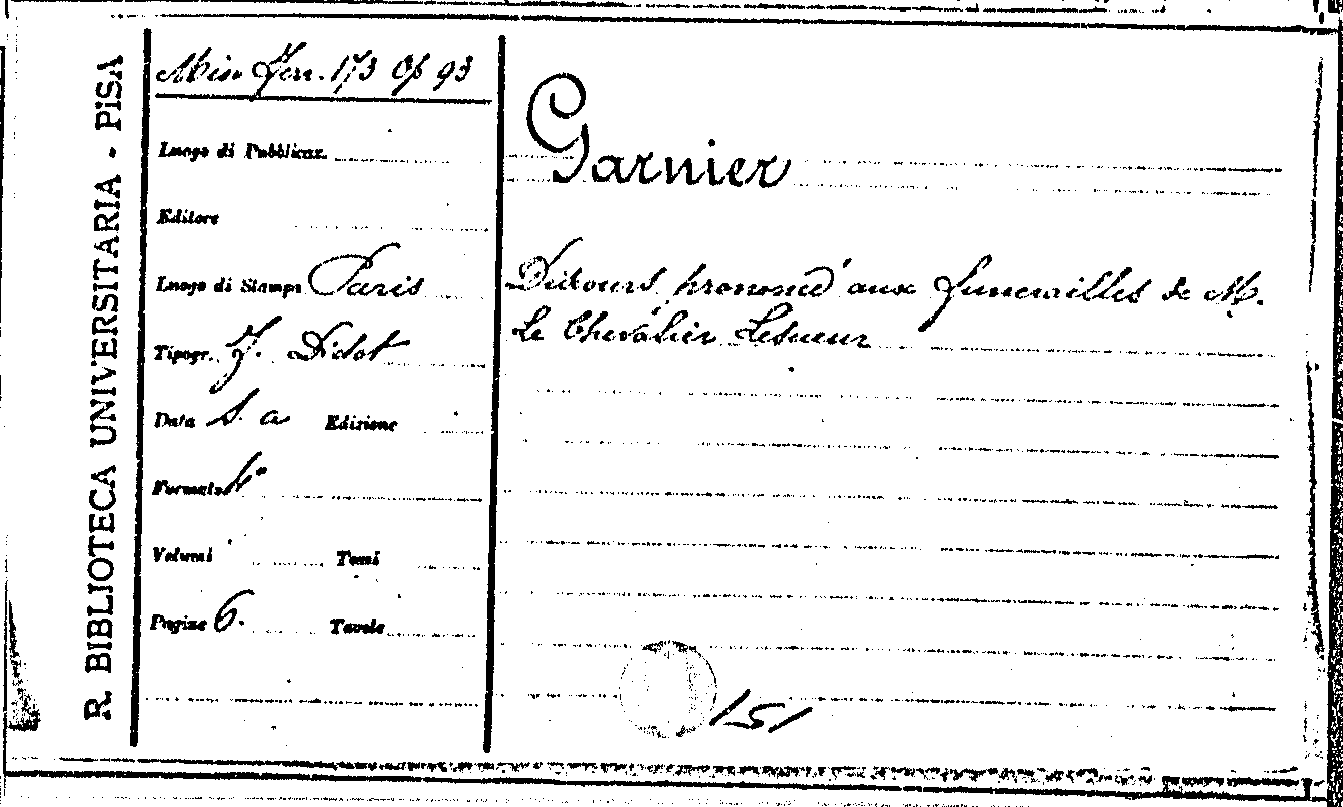 R. BIBLIOTECA UNIVERSITARIA - PISA
Mis. Ferr. 173 Op 93
Luogo di Pubblicaz.
Editore
Luogo di Stampa Paris
Tipogr. J. Didot
Data S. a Edizione
Formato 4°
Volumi Tomi
Pagine 6. Tavole
Garnier
Discours prononcé aux funerailles de M.
Le Chevalier Lesueur
151